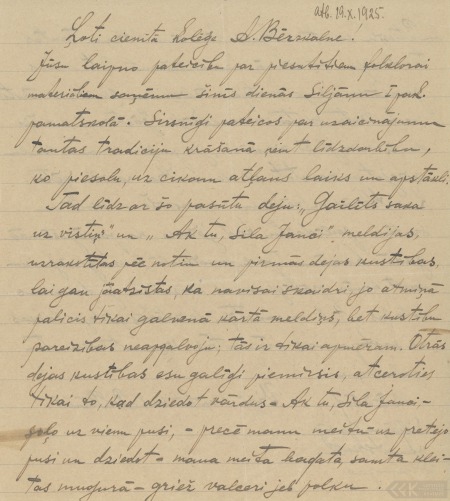 atb. 19.X.1925.
Ļoti cienītā kolēģe A. Bērzkalne!
Jūsu laipno pateicību par piesūtītiem folklorai
materiāliem saņēmu šinīs dienās Siljāņu I pak.
pamatskolā. Sirsnīgi pateicos par uzaicinājumu
tautas tradiciju krāšanā ņemt līdzdarbību,
ko piesolu, uz cikom atļaus laiks un apstākļi.
Tad līdz ar šo pasūtu deju: "Gailēts saka
uz vistiņ" un "Ak tu, sila Janči", meldijas,
uzrakstītas pēc notīm un pirmās dejas kustības,
lai gan jāatzīstas, ka navisai skaidri, jo atmiņā
palicis tikai galvenā kārtā meldiņš, bet kustību
pareizības neapgalvoju; tās ir tikai apmēram. Otrās
dejas kustības esu galīgi piemirsis, atceroties
tikai to, kad dziedot vārdus - Ak tu, sila Janči -
goļo uz vienu pusi, - precē manu meitu - uz pretējo
pusi un dziedot - mana meita bagata, samta klei-
tas mugurā - griež valceri jeb polku.